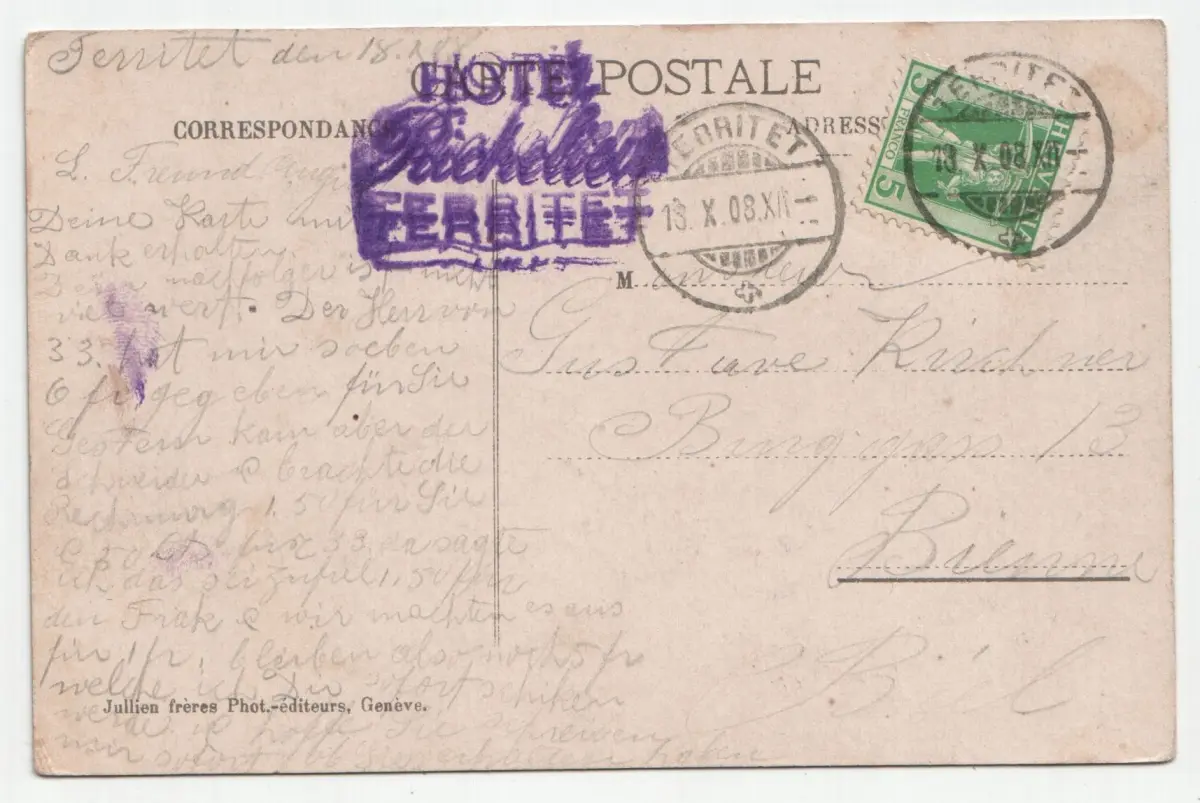 Territet den 18.
CARTE POSTALE
HOTEL
Richelieu
TERRITET
CORRESPONDANCE
ADRESSE
TERRITET
13. X. 08. XII
TERRITET
13. X. 08. XII
HELVETIA
5 FRANCO 5
L. Freund
Deine Karte mit
Dank erhalten.
Dein nachfolger ist nicht
viel wert. Der Herr von
33. hat mir soeben
6 fr. gegeben für Sie
Gestern kam aber der
schneider & brachte die
Rechnung 1.50 für Sie
& 50 cts. bis 33. da sagte
ich das sei zu viel 1.50 für
den Frak & wir machten es aus
für 1 fr. bleiben also noch 5 fr
welche ich Dir sofort schiken
werde ich hoffe Sie schreiben
mir sofort ob Sie erhalten haben
M
Gustave Kirchner
Burggass 13
Bienne
Biel
Jullien frères Phot.-éditeurs, Genève.